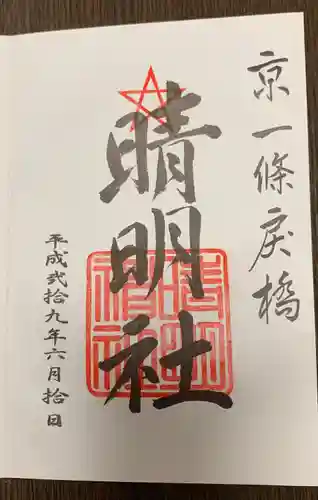 京一條戻橋
晴明社
晴明
神社
平成弐拾九年六月拾日